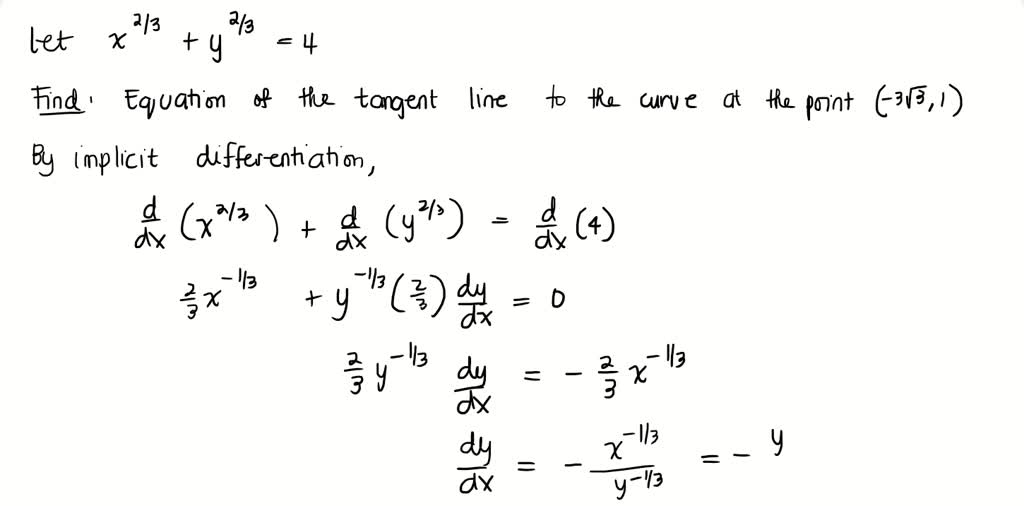 Let x^{2/3} + y^{2/3} = 4
Find: Equation of the tangent line to the curve at the point (-3√3, 1)
By implicit differentiation,
d/dx (x^{2/3}) + d/dx (y^{2/3}) = d/dx (4)
2/3 x^{-1/3} + y^{-1/3} (2/3) dy/dx = 0
2/3 y^{-1/3} dy/dx = - 2/3 x^{-1/3}
dy/dx = - x^{-1/3} / y^{-1/3} = - y